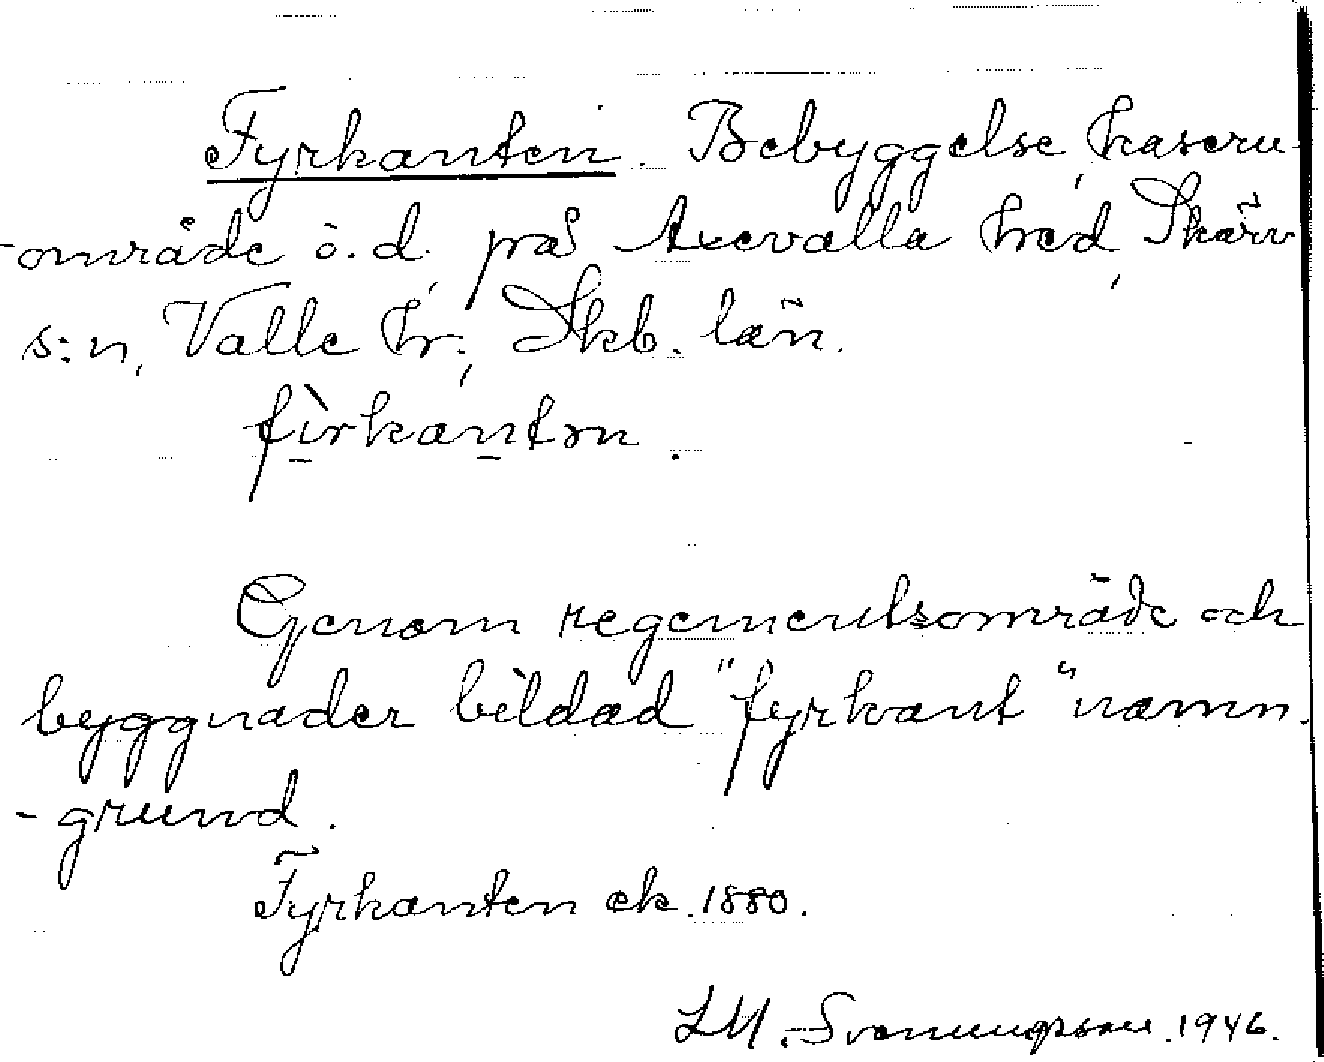 Fyrkanten. Bebyggelse, kasern-
-område ö.d. på Axevalla hed, Skärv
s:n, Valle hr:, Skb. län.
fìrkantən.
Genom regementsområde och
byggnader bildad "fyrkant" namn-
-grund.
Fyrkanten ek. 1880.
LM. Svenungsson. 1946.